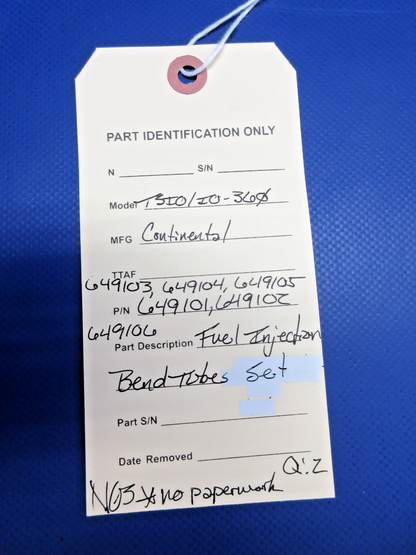 PART IDENTIFICATION ONLY
N ____________ S/N ____________
Model TSIO/IO-360
MFG Continental
TTAF
649103, 649104, 649105
P/N 649101, 649102
649106
Part Description Fuel Injection
Bend Tubes Set
Part S/N
Date Removed
Q:2
NG3 no paperwork